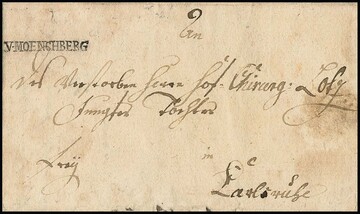 An
V.MOENCHBERG
Des Verstorben Herrn Hof Chirurg:
Jungfer Tochter
in
frey
Carlsruhe